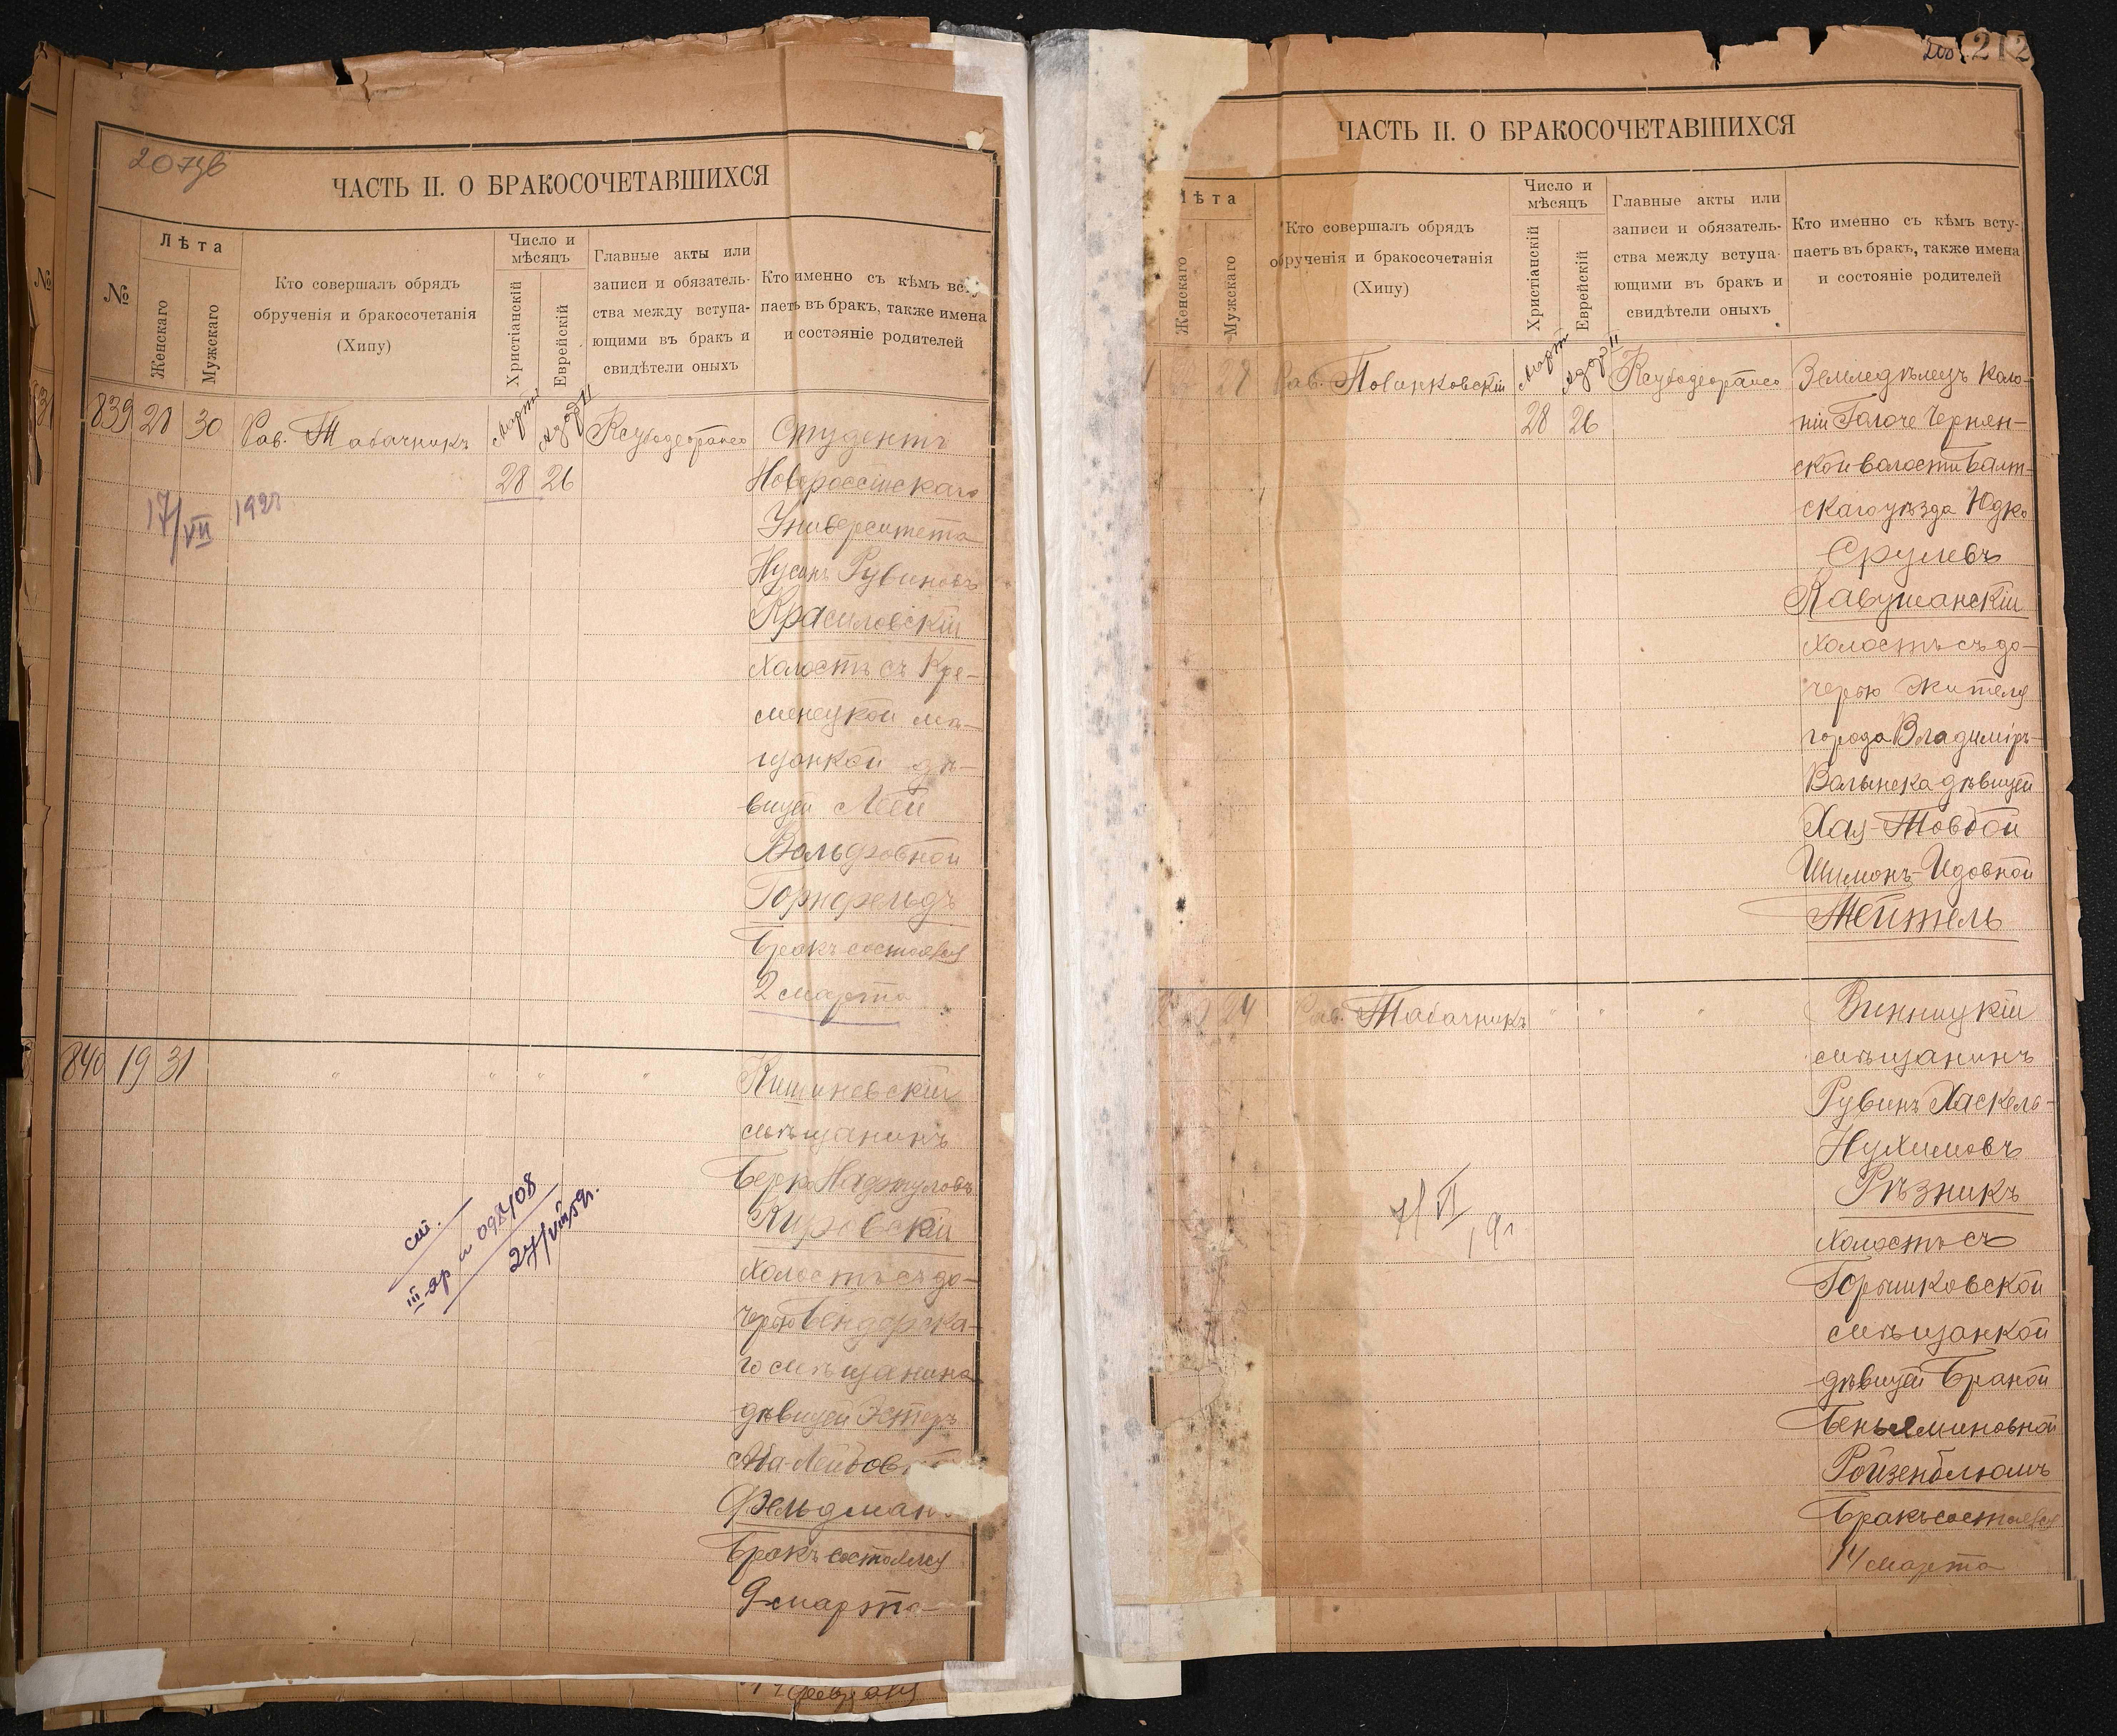 207
ЧАСТЬ II. О БРАКОСОЧЕТАВШИХСЯ
№
Лѣта
Женскаго
Мужскаго
Кто совершалъ обрядъ
обрученія и бракосочетанія
(Хипу)
Число и
мѣсяцъ
Христіанскій
Еврейскій
Главные акты или
записи и обязатель-
ства между вступа-
ющими въ бракъ и
свидѣтели оныхъ
Кто именно съ кѣмъ всту-
паетъ въ бракъ, также имена
и состояніе родителей
839 20 30 Рав. Табачникъ
Марта
28
Адаръ II
26
Студентъ
Новороссійскаго
Университета
Нусинъ Рувиновъ
Красиловскій
холостъ съ Кре-
менецкой мѣ-
щанкой дѣ-
вицей Леей
Вольфовной
Горнфельдъ
Бракъ состоялся
2 марта
17/VII
840 19 31 " " " "
Кишиневскій
мѣщанинъ
Берко
холостъ съ до-
черью Бендерска-
го мѣщанина
дѣвицей Эстеръ
Фельдман
Бракъ состоялся
9 марта
см.
27/VIII
212
ЧАСТЬ II. О БРАКОСОЧЕТАВШИХСЯ
Лѣта
Женскаго
Мужскаго
Кто совершалъ обрядъ
обрученія и бракосочетанія
(Хипу)
Число и
мѣсяцъ
Христіанскій
Еврейскій
Главные акты или
записи и обязатель-
ства между вступа-
ющими въ бракъ и
свидѣтели оныхъ
Кто именно съ кѣмъ всту-
паетъ въ бракъ, также имена
и состояніе родителей
Рав.
Март
28
Адаръ II
26
Земледѣлецъ коло-
ніи Голоче Чернян-
ской волости Балт-
скаго уѣзда Юдко
Срулевъ
Кавушанскій
холостъ съ до-
черью жителя
города Владиміръ-
Волынска дѣвицей
Хая-Товбой
Шимонъ-Идовной
Тейтель
24 Рав. Табачникъ " " "
Винницкій
мѣщанинъ
Рувинъ Хаскель-
Нухимовъ
Рѣзникъ
холостъ съ
Горышковской
мѣщанкой
дѣвицей Браной
Беньяминовной
Ройзенблюмъ
Бракъ состоялся
14 марта
февраля